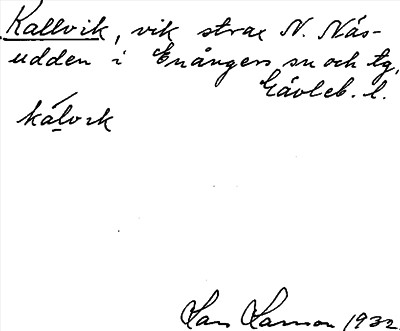 Kallvik, vik strax N. Näs-
udden i Enångers sn och tg,
Gävleb. l.
kálvɩk
Lars Larsson 1932